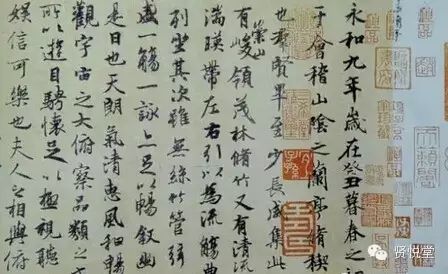 永和九年歲在癸丑暮春之初
于會稽山陰之蘭亭脩稧
也羣賢畢至少長咸集此
有崇山峻領茂林脩竹又有清流
湍暎帶左右引以為流觴曲
列坐其次雖無絲竹管弦
盛一觴一詠亦足以暢敘幽
是日也天朗氣清惠風和暢
觀宇宙之大俯察品類之
所以遊目騁懷足以極視聽
娛信可樂也夫人之相與俯
贤悦堂